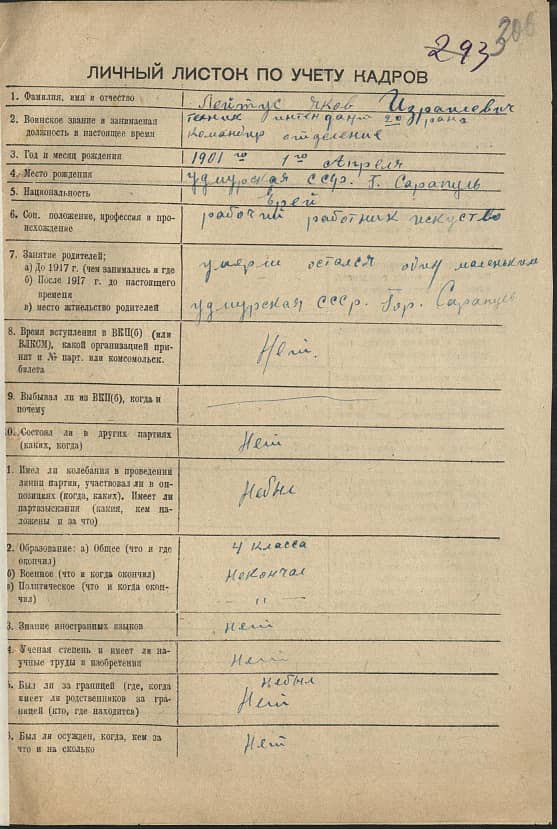 293
306
ЛИЧНЫЙ ЛИСТОК ПО УЧЕТУ КАДРОВ
1. Фамилия, имя и отчество
Лейтус Яков Израилевич
2. Воинское звание и занимаемая
должность в настоящее время
техник интендант 20
командир отделение
3. Год и месяц рождения
1901 го 1го Апреля
4. Место рождения
удмурская СССР. Г. Сарапуль
5. Национальность
Еврей
6. Соц. положение, профессия и про-
исхождение
рабочий работник искуство
7. Занятие родителей;
а) До 1917 г. (чем занимались и где
б) После 1917 г. до настоящего
времени
в) место жительство родителей
умерли остался один маленьким
удмурская СССР. Гор. Сарапуль
8. Время вступления в ВКП(б) (или
ВЛКСМ), какой организацией при-
нят и № парт. или комсомольск.
билета
Нет.
9. Выбывал ли из ВКП(б), когда и
почему
0. Состоял ли в других партиях
(каких, когда)
Нет
1. Имел ли колебания в проведении
линии партии, участвовал ли в оп-
позициях (когда, каких). Имеет ли
партвзыскания (какия, кем на-
ложены и за что)
Небыл
2. Образование: а) Общее (что и где
окончил)
б) Военное (что и когда окончил)
в) Политическое (что и когда окон-
чил)
4 класса
некончал
" —
3. Знание иностранных языков
нет
4. Ученая степень и имеет ли на-
учные труды и изобретения
Нет
5. Был ли за границей (где, когда
имеет ли родственников за гра-
ницей (кто, где находится)
небыл
Нет
6. Был ли осужден, когда, кем за
что и на сколько
Нет